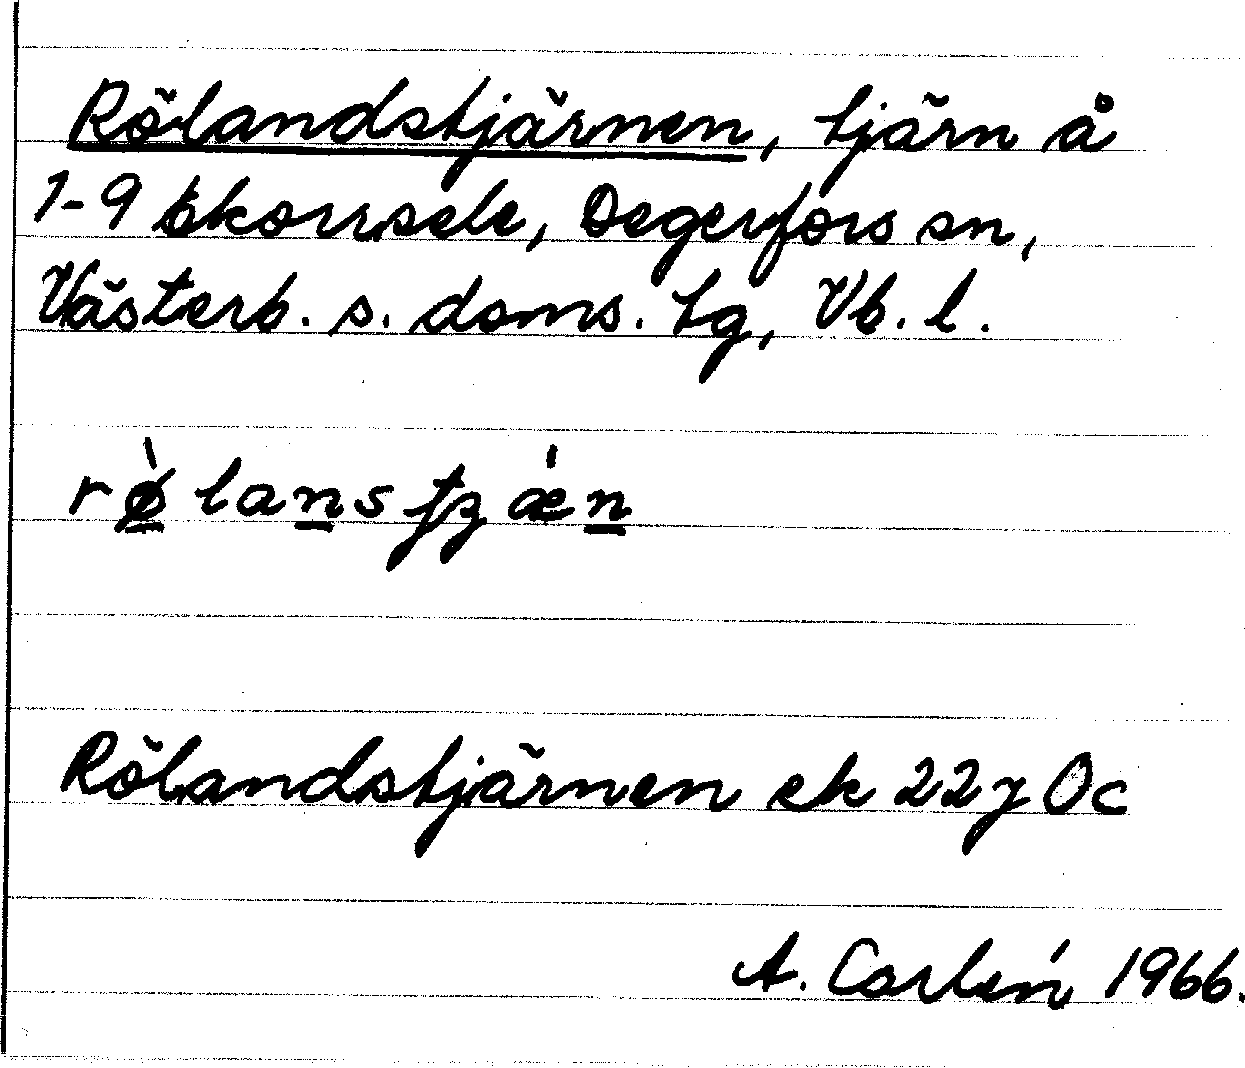 Rölandstjärnen, tjärn å
1-9 Ekorrsele, Degerfors sn,
Västerb. s. doms. tg, Vb. l.
rø̀lansʃʒǽn
Rölandstjärnen ek 22 7 Oc
A. Carlén 1966.